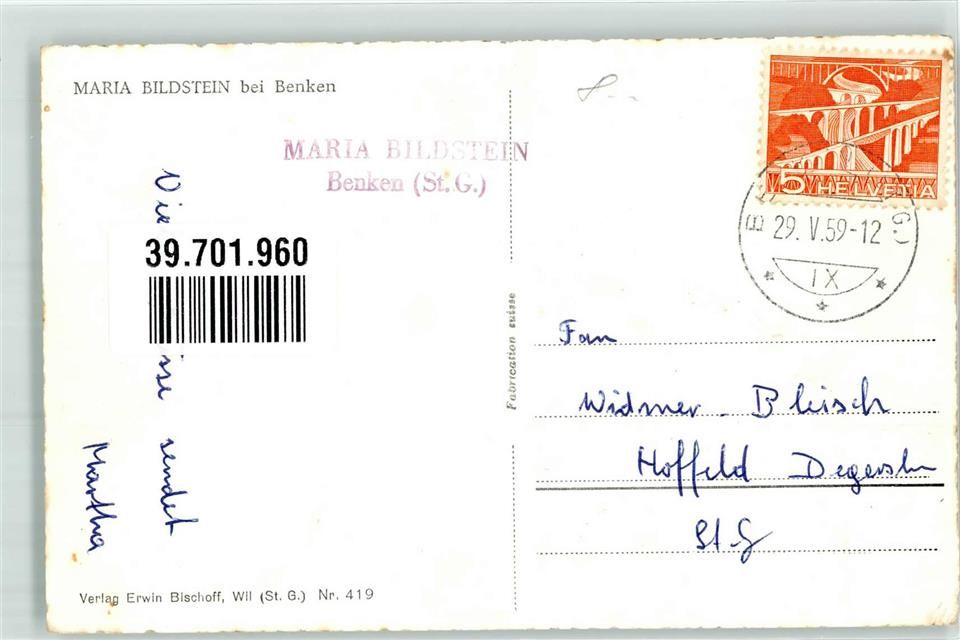 MARIA BILDSTEIN bei Benken
MARIA BILDSTEIN
Benken (St. G.)
39.701.960
sendet
Martha
Verlag Erwin Bischoff, Wil (St. G.) Nr. 419
Fabrication suisse
5 HELVETIA
29. V. 59-12
IX
Widmer - Bleisch
Hoffeld
St G